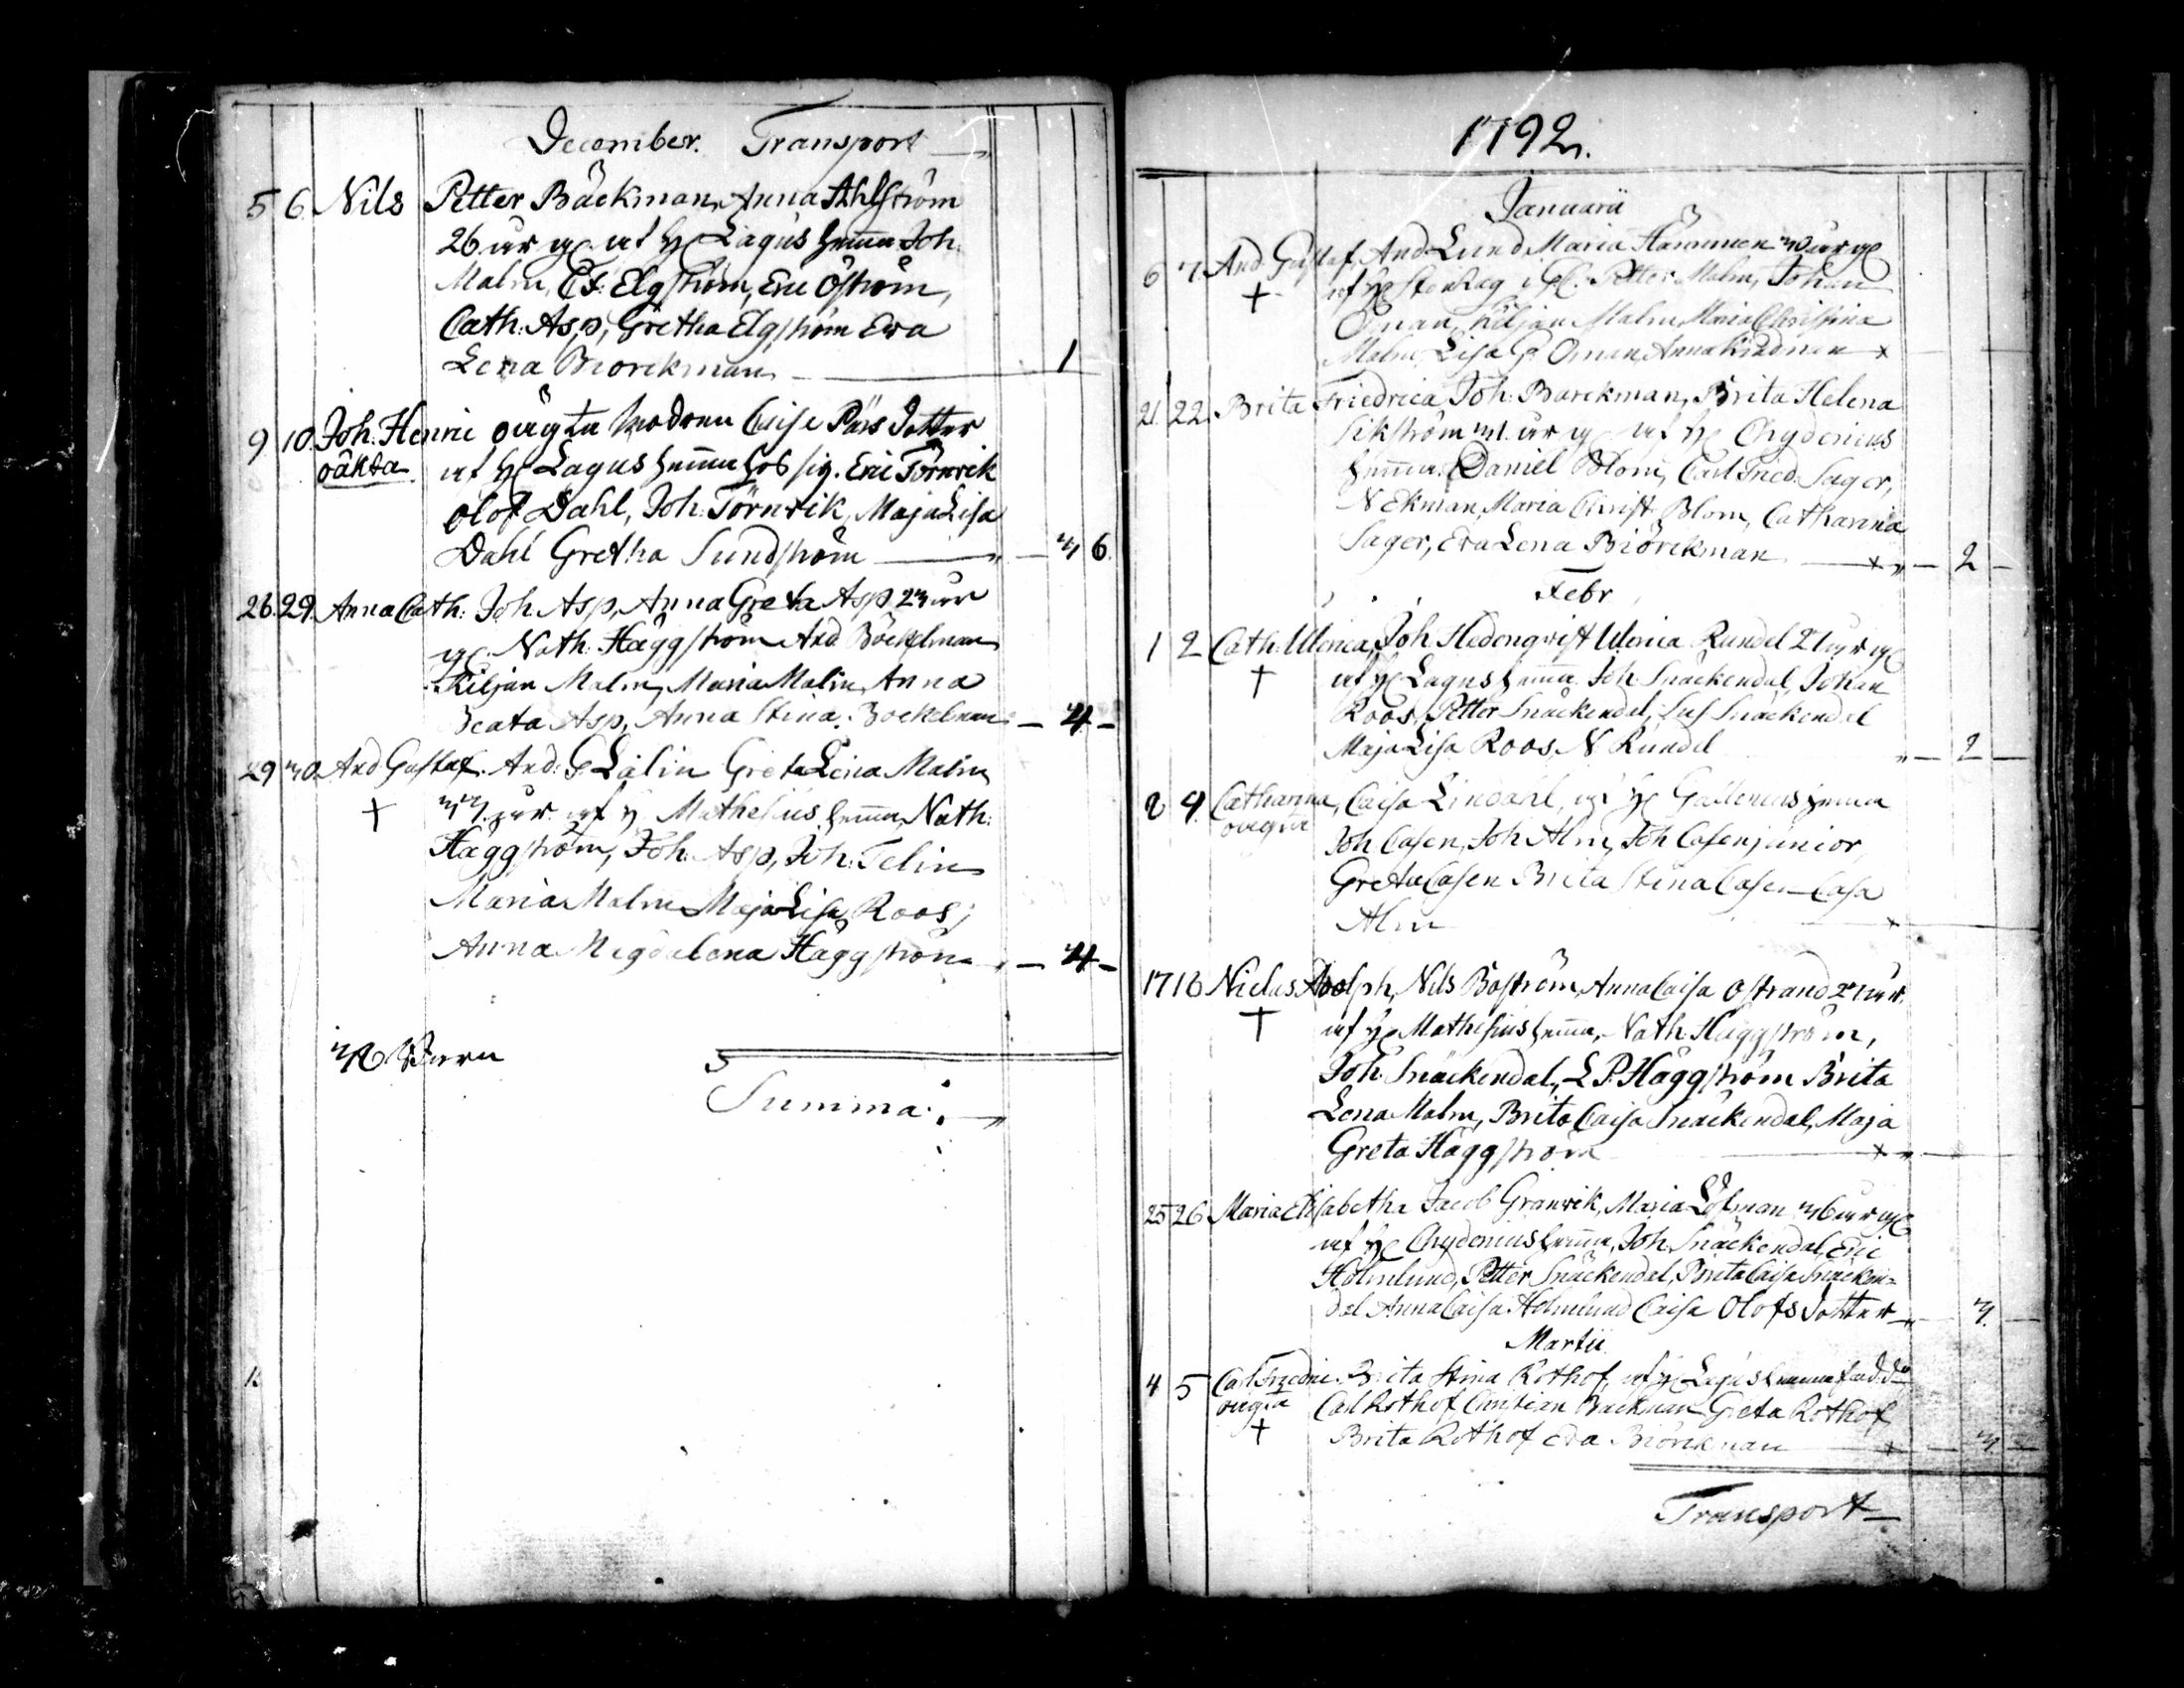 December. Transport
5 6. Nils Petter Bäckman, Anna Ahlström
26 år g. af H. Lagus hemma Joh.
Malm, Elgström, Eric Öström,
Cath: Asp, Gretha Elgström Eva
Lena Biorckman 1
9 10. Joh. Henric oägta modren Caisa Pärs Dotter
oäkta af H. Lagus hemma hos sig. Eric Törnvik
Olof Dahl, Joh: Törnvik, Maja Lisa
Dahl Gretha Sundström 3 6.
26. 29. Anna Cath: Joh. Asp, Anna Greta Asp 23 år
g. Nath: Häggström And. Böckelman
Kiljan Malm, Maria Malm, Anna
Beata Asp, Anna Stina Bockelman 4
29 30 And Gustaf. And: G. Lalin Greta Lena Malm
† 33 år af H. Mathesius hemma, Nath:
Häggström, Joh. Asp, Joh. Telin
Maria Malm Maja Lisa Roos,
Anna Magdalena Häggström 4
Barn
Summa:
1792.
Januarii
6 7. And. Gustaf, And. Lund Maria Hämmen 30 år g
† af H. Petter Malm, Johan
Öman, Kiljan Malm, Maria Christina
Malm, Lisa G. Öman, Anna
21. 22. Brita Friedrica Joh. Barckman, Brita Helena
Sikström 31. år g af H. Chydenius
hemma. Daniel Blom, Carl Fred. Sager,
N Ekman, Maria Christ. Blom, Catharina
Sager, Eva Lena Biörckman 2
Febr
1 2 Cath. Ulrica, Joh Hedenqvist Ulrica Rundel 21 år g
† af H. Lagus hemma. Joh Snäckendal, Johan
Roos, Petter Snäckendal, Snäckendal
Maja Lisa Roos, N Rundel 2
8 9. Catharina, Caisa Lindahl, af H. Gallenius hemma
oägta Joh Casen, Joh Alm, Joh Casen junior,
Greta Casen Brita Stina Casen Casa
Alm
17 18 Niclas Adolph, Nils Boström, Anna Caisa Östrand 27 år.
† af H. Mathesius hemma, Nath Häggström,
Joh. Snäckendal, L P. Häggström Brita
Lena Malm, Brita Caisa Snäckendal, Maja
Greta Häggström
25 26 Maria Elisabetha Jacob Granvik, Maria Löfman 36 år g
af H. Chydenius hemma, Joh. Snäckendal, Eric
Holmlund, Petter Snäckendal, Brita Caisa Snäcken-
dal Anna Caisa Holmlund Caisa Olofs Dotter 3.
Martii
4 5 Carl Fredric. Brita Stina Rothof, af H. Lagus hemma
oägta Carl Rothof Christian Backman Greta Rothof
† Brita Rothof Eva Biörckman 3.
Transport